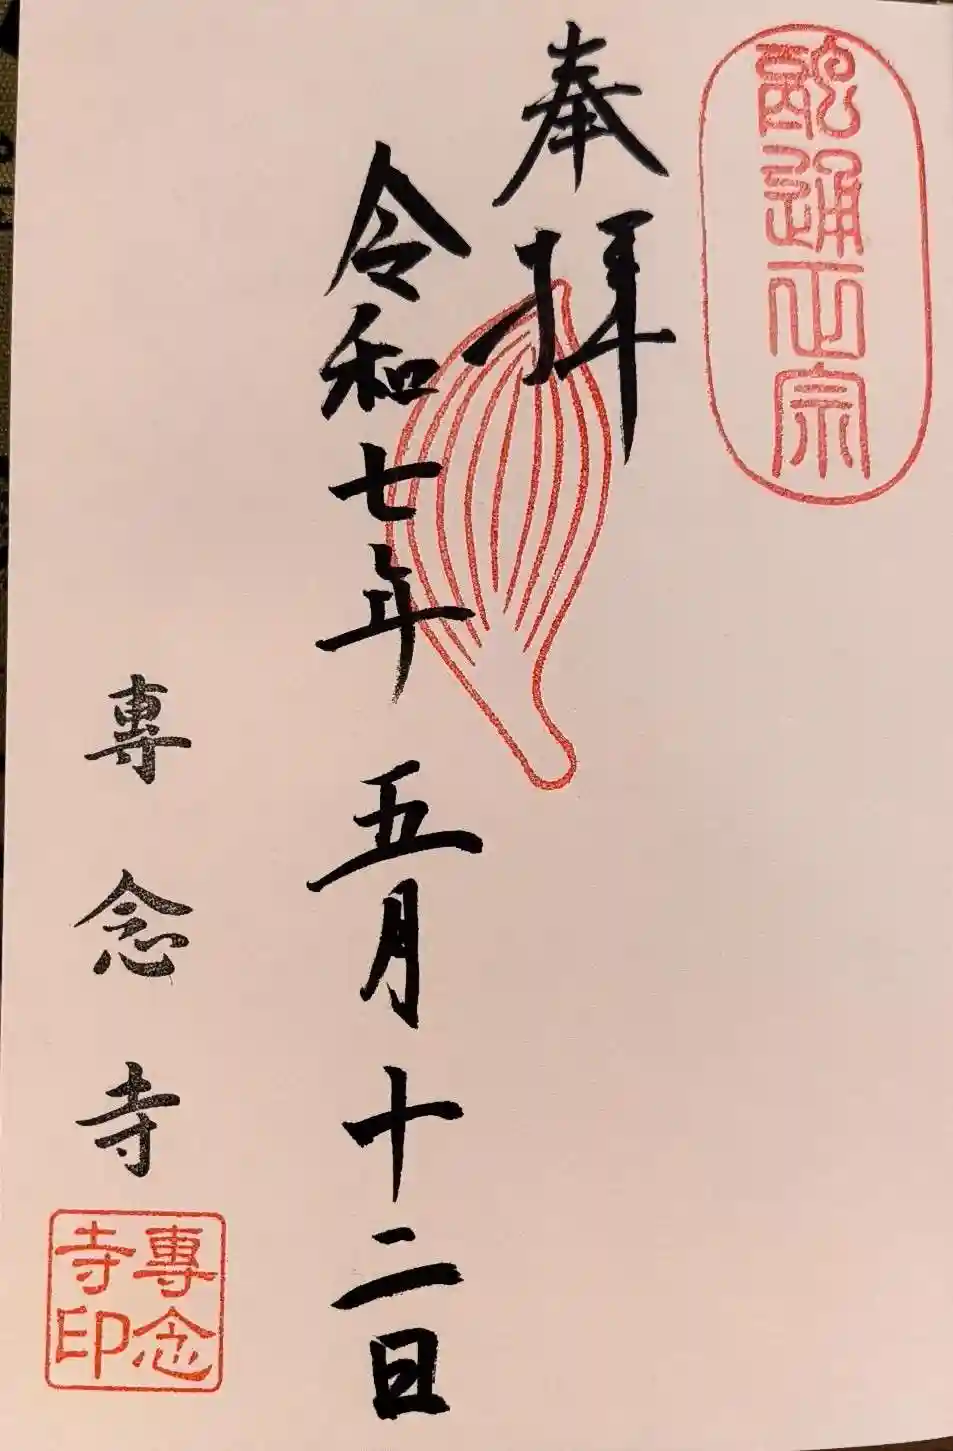 融通正宗
奉拜
令和七年 五月十二日
專念寺
專念寺印